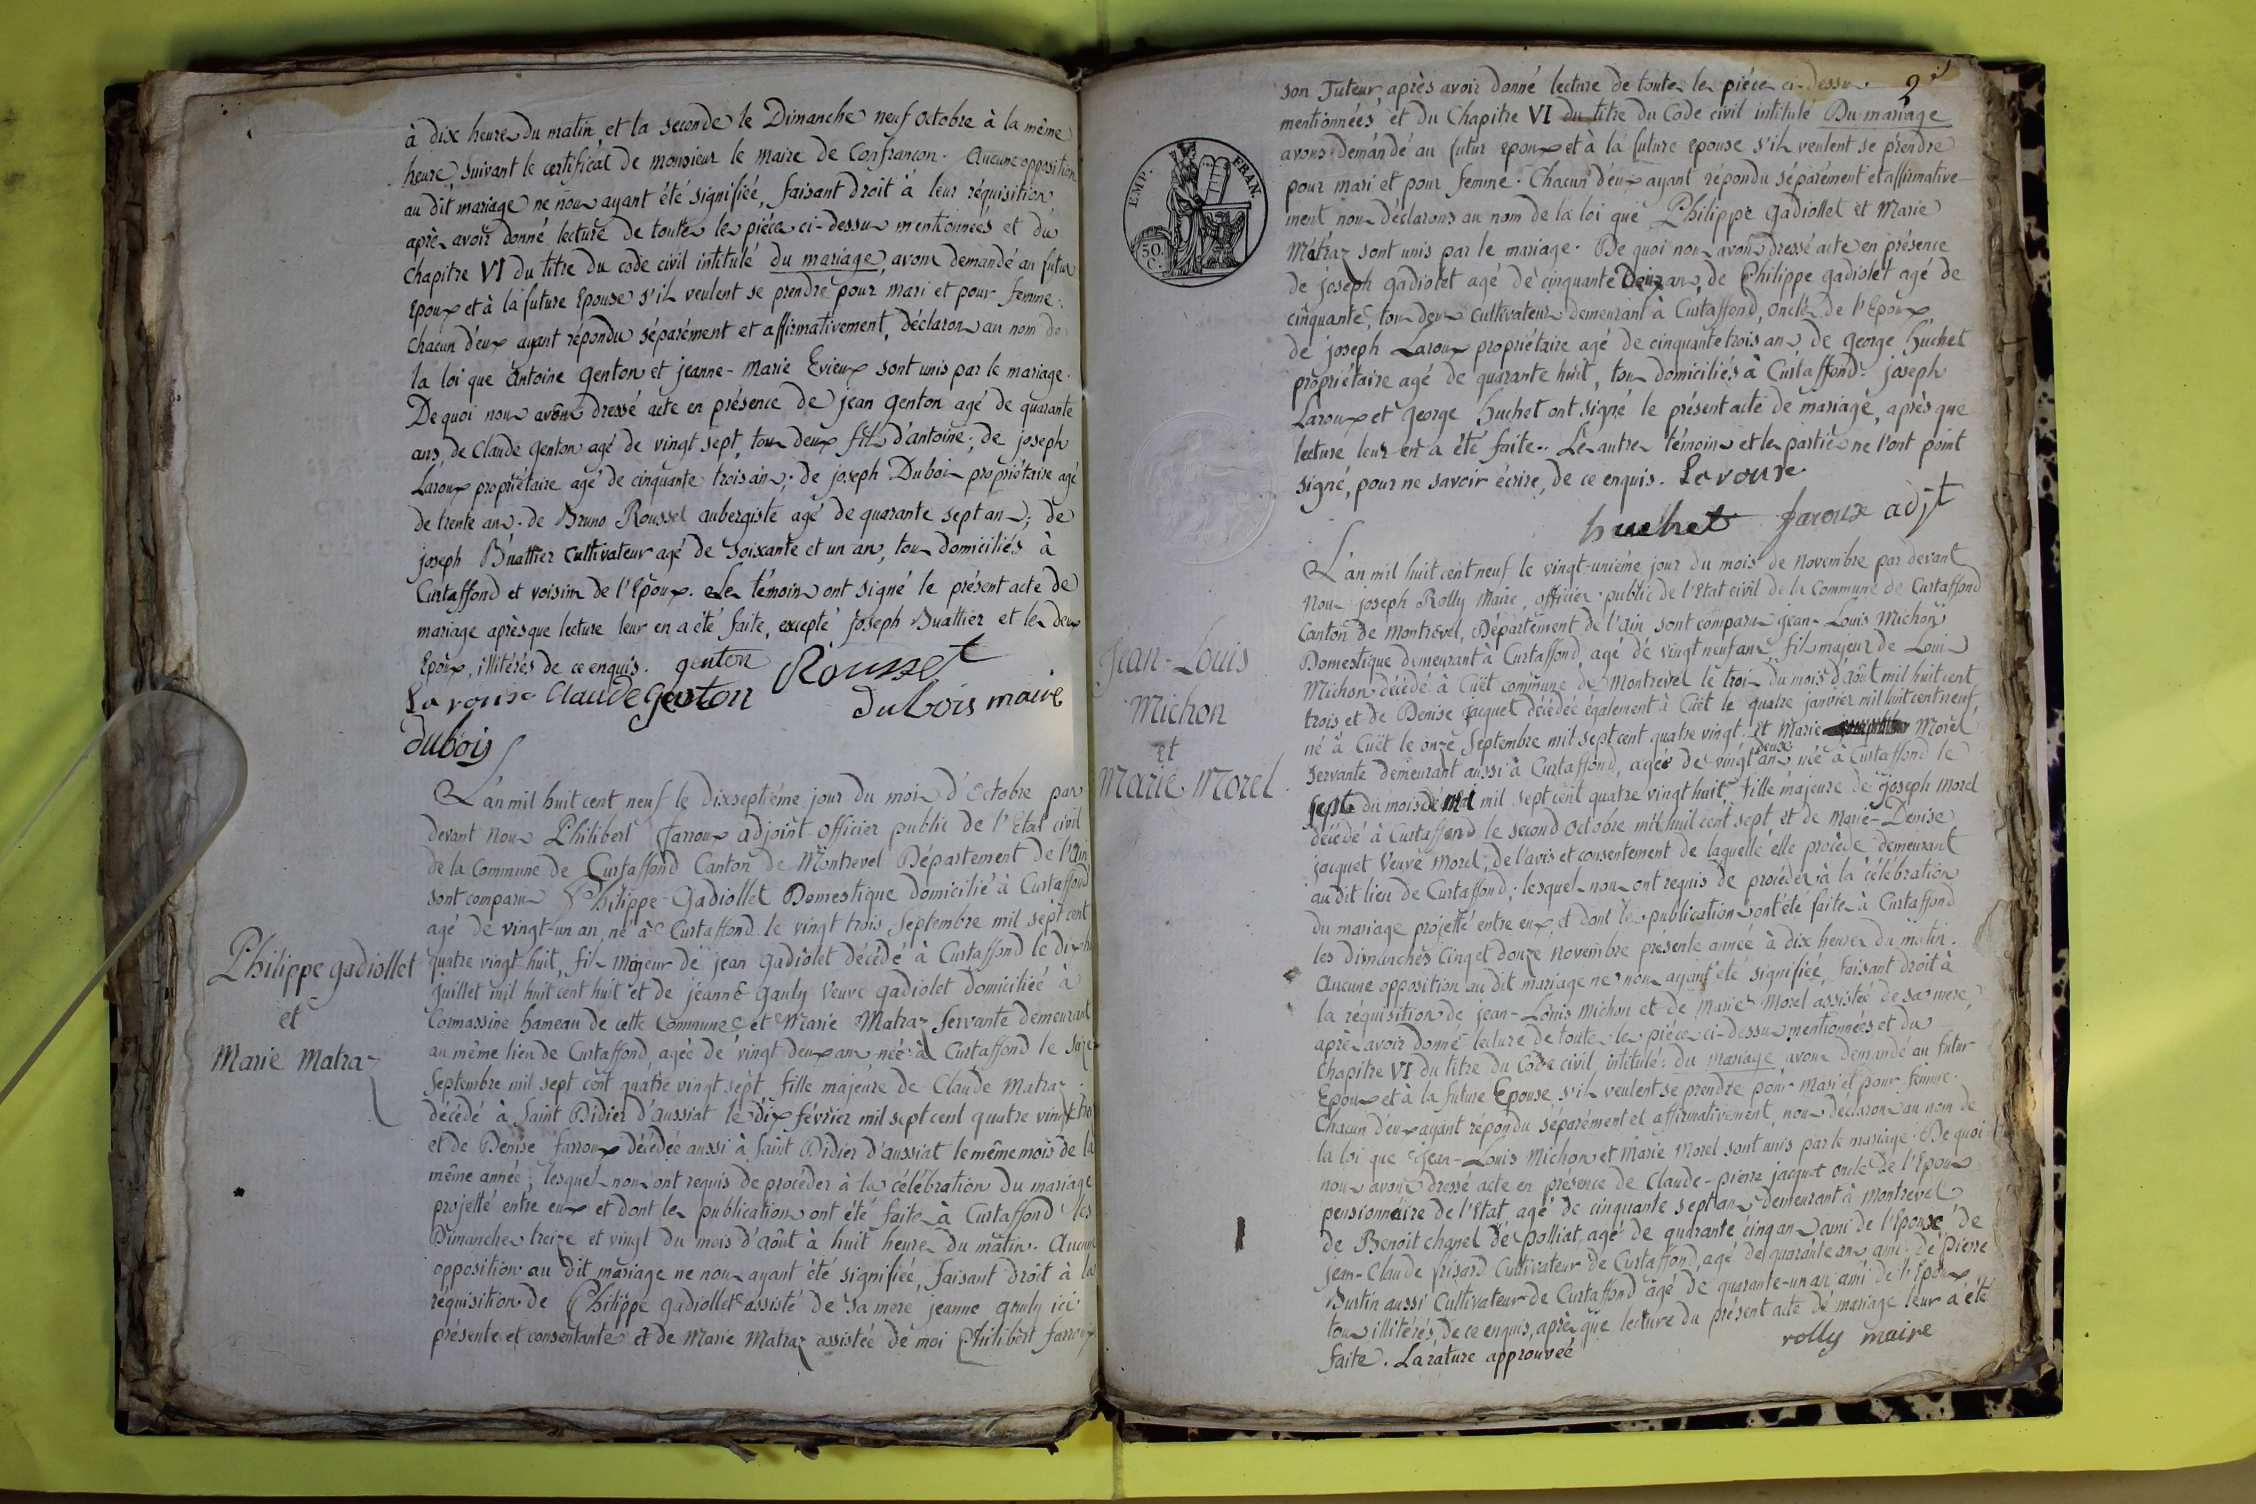 à dix heures du matin et la seconde le Dimanche neuf octobre à la même
heure suivant le certificat de monsieur le maire de Confrancon. Aucune opposition
au dit mariage ne nous ayant été signifiée, faisant droit à leur réquisition
après avoir donné lecture de toutes les pièces ci-dessus mentionnées et du
chapitre VI du titre du code civil intitulé du mariage, avons demandé au futur
Epoux et à la future Epouse s'ils veulent se prendre pour mari et pour femme:
chacun d'eux ayant répondu séparément et affirmativement, déclarons au nom de
la loi que Antoine genton et jeanne-Marie Evieux sont unis par le mariage.
De quoi nous avons dressé acte en présence de jean genton agé de quarante
ans, de Claude genton agé de vingt sept, tous deux fils d'antoine; de joseph
Laroux propriétaire agé de cinquante trois ans; de joseph Dubois propriétaire agé
de trente ans. de Bruno Rousset aubergiste agé de quarante sept ans; de
joseph Buattier cultivateur agé de soixante et un ans, tous domiciliés à
Curtaffond et voisins de l'Epoux. Les témoins ont signé le présent acte de
mariage après que lecture leur en a été faite, excepté joseph Buattier et les deux
Epoux, illitérés de ce enquis. genton Rousset
Laroux Claude genton dubois maire
dubois
L'an mil huit cent neuf le dixseptième jour du mois d'Octobre par
devant nous Philibert Farroux adjoint officier public de l'Etat civil
de la Commune de Curtaffond Canton de Montrevel Département de l'Ain
sont comparus Philippe Gadiollet Domestique domicilié à Curtaffond
agé de vingt-un an, né à Curtaffond le vingt trois Septembre mil sept cent
quatre vingt huit, fils majeur de jean Gadiolet décédé à Curtaffond le
Philippe gadiollet
et
Marie Matraz
juillet mil huit cent huit et de jeanne gauly veuve gadiolet domiciliée à
Cormassine hameau de cette Commune et Marie Matraz servante demeurant
au même lieu de Curtaffond, agée de vingt deux ans née à Curtaffond le seize
Septembre mil sept cent quatre vingt sept fille majeure de Claude Matraz
décédé à Saint Didier d'aussiat le dix février mil sept cent quatre vingt
et de Denise Farroux décédée aussi à Saint Didier d'aussiat le même mois de la
même année; lesquels nous ont requis de procéder à la célébration du mariage
projetté entre eux et dont les publications ont été faites à Curtaffond les
Dimanches treize et vingt du mois d'Août à huit heures du matin. Aucune
opposition au dit mariage ne nous ayant été signifiée, faisant droit à la
réquisition de Philippe gadiollet assisté de sa mere jeanne gauly ici
présente et consentante et de Marie Matraz assistée de moi Philibert Farroux
2
son Tuteur, après avoir donné lecture de toutes les pièces ci-dessus
mentionnées et du Chapitre VI du titre du Code civil intitulé Du mariage
avons demandé au futur epoux et à la future epouse s'ils veulent se prendre
pour mari et pour femme. Chacun d'eux ayant répondu séparément et affirmative-
ment, nous déclarons au nom de la loi que Philippe gadiollet et Marie
Matraz sont unis par le mariage. De quoi nous avons dressé acte en présence
de joseph gadiolet agé de cinquante Deux ans, de Philippe gadiolet agé de
cinquante, tous deux cultivateurs demeurant à Curtaffond, oncles de l'Epoux,
de joseph Laroux propriétaire agé de cinquante trois ans de george huchet
propriétaire agé de quarante huit, tous domiciliés à Curtaffond. joseph
Laroux et george huchet ont signé le présent acte de mariage, après que
lecture leur en a été faite. Les autres témoins et les parties ne l'ont point
signé, pour ne savoir écrire, de ce enquis. Laroux
huchet Faroux adjt
EMP. FRAN.
50. C.
L'an mil huit cent neuf le vingt-unième jour du mois de novembre par devant
Nous joseph Rolly Maire, officier public de l'Etat civil de la Commune de Curtaffond
Canton de Montrevel, Département de l'Ain sont comparus jean-Louis Michon
Domestique demeurant à Curtaffond, agé de vingt neuf ans, fils majeur de Louis
Michon décédé à Cuët commune de Montrevel le trois du mois d'août mil huit cent
trois et de Denise jacquet décédée également à Cuët le quatre janvier mil huit cent neuf
né à Cuët le onze Septembre mil sept cent quatre vingt. Et Marie Morel
Jean-Louis
Michon
et
Marie Morel
servante demeurant aussi à Curtaffond, agée de vingt deux ans née à Curtaffond le
Sept du mois de Mai mil sept cent quatre vingt huit fille majeure de joseph Morel
décédé à Curtaffond le second octobre mil huit cent sept et de Marie-Denise
jacquet Veuve Morel, de l'avis et consentement de laquelle elle procède demeurant
au dit lieu de Curtaffond; lesquels nous ont requis de procéder à la célébration
du mariage projetté entre eux, et dont les publications ont été faites à Curtaffond
les dimanches Cinq et douze novembre présente année à dix heures du matin.
Aucune opposition au dit mariage ne nous ayant été signifiée, faisant droit à
la réquisition de jean-Louis Michon et de Marie Morel assistée de sa mere,
après avoir donné lecture de toutes les pièces ci-dessus mentionnées et du
Chapitre VI du titre du Code civil, intitulé: du mariage avons demandé au futur
Epoux et à la future Epouse s'ils veulent se prendre pour mari et pour femme.
Chacun d'eux ayant répondu séparément et affirmativement, nous déclarons au nom de
la loi que Jean-Louis Michon et Marie Morel sont unis par le mariage. De quoi
nous avons dressé acte en présence de Claude-pierre jacquet oncle de l'Epoux
pensionnaire de l'Etat agé de cinquante sept ans demeurant à Montrevel
de Benoit chanel de Polliat, agé de quarante cinq ans ami de l'Epouse de
jean-Claude frisard Cultivateur de Curtaffond, agé de quarante ans ami. de Pierre
Burtin aussi Cultivateur de Curtaffond agé de quarante-un an ami de l'Epoux
tous illitérés, de ce enquis, après que lecture du présent acte de mariage leur a été
faite. La rature approuvée rolly maire